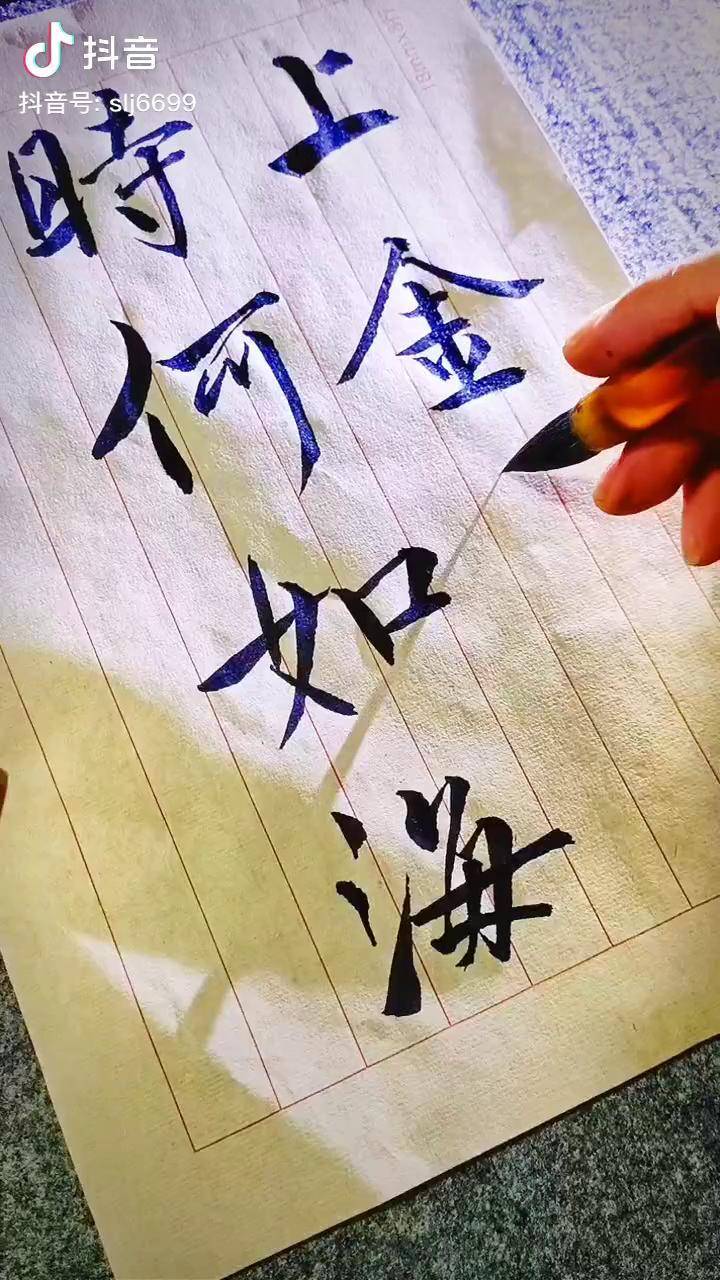 抖音
抖音号: slj6699
上金
時何如海